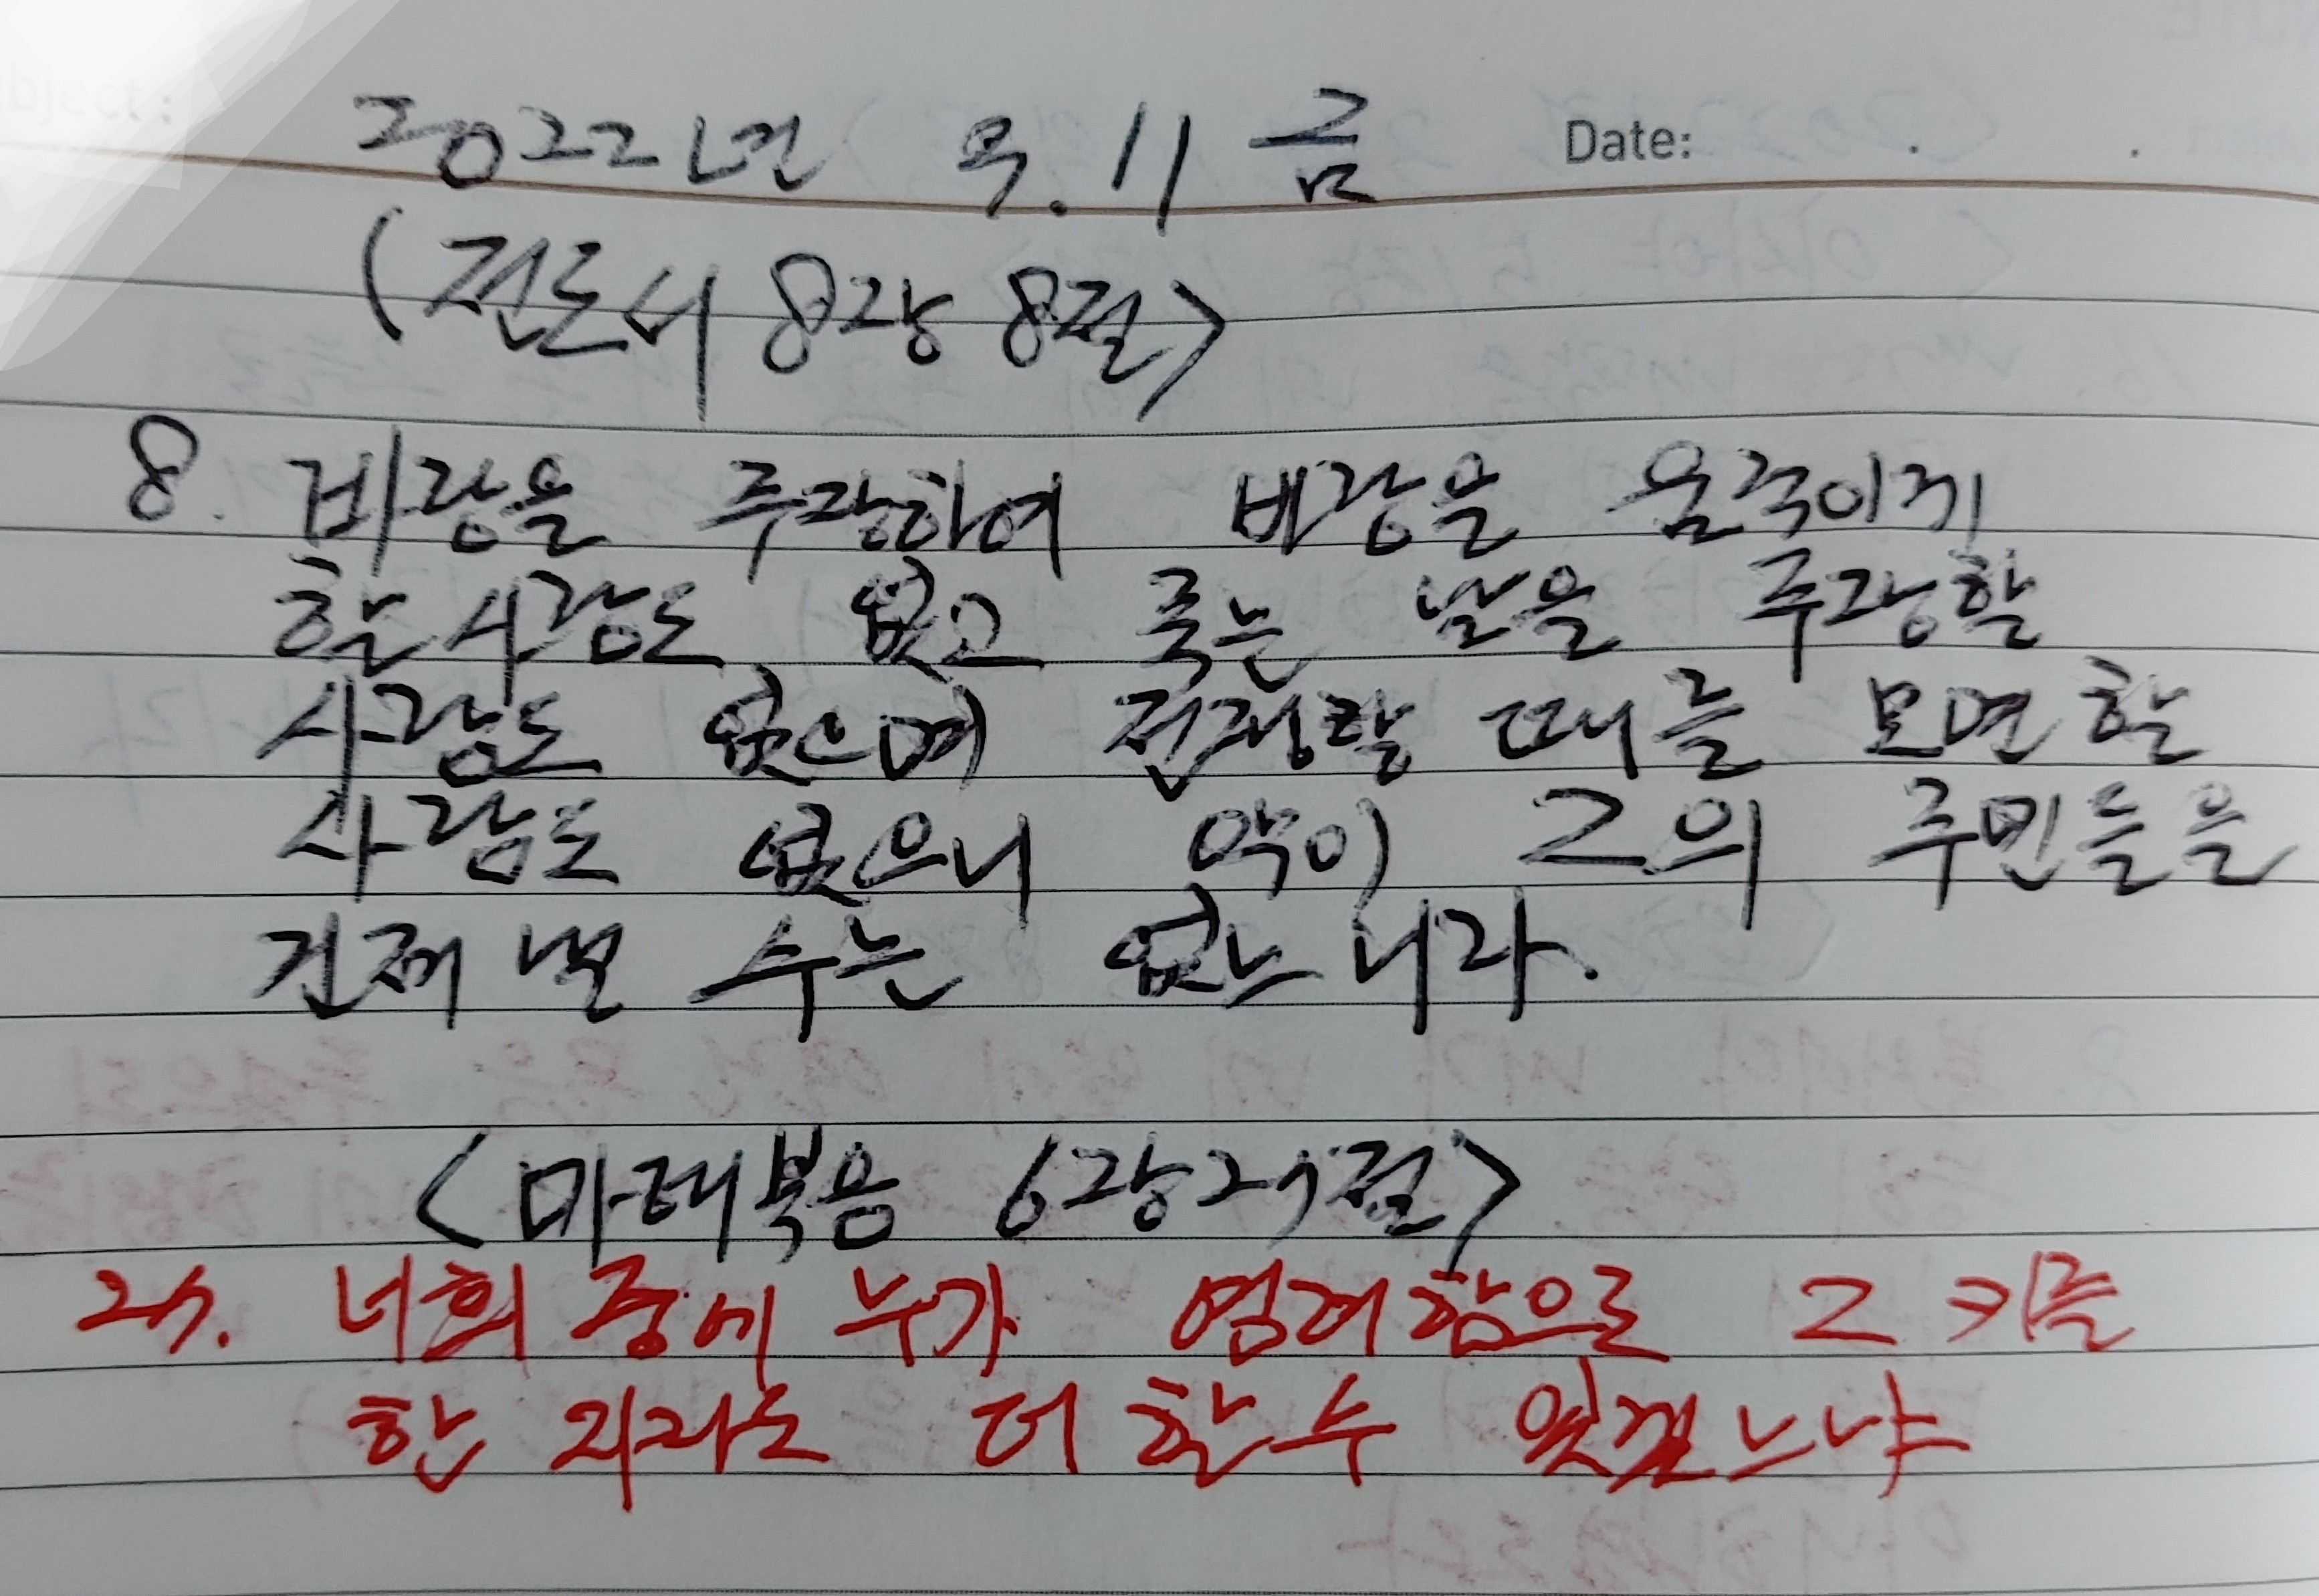 bject :
2022년 3. 11 금 Date: . .
(전도서 8장 8절>
8. 바람을 주장하여 바람을 움직이게
할 사람도 없고 죽는 날을 주장할
사람도 없으며 전쟁할 때를 모면할
사람도 없으니 악이 그의 주민들을
건져 낼 수는 없느니라.
<마태복음 6장 27절>
27. 너희 중에 누가 염려함으로 그 키를
한 자라도 더 할 수 있겠느냐